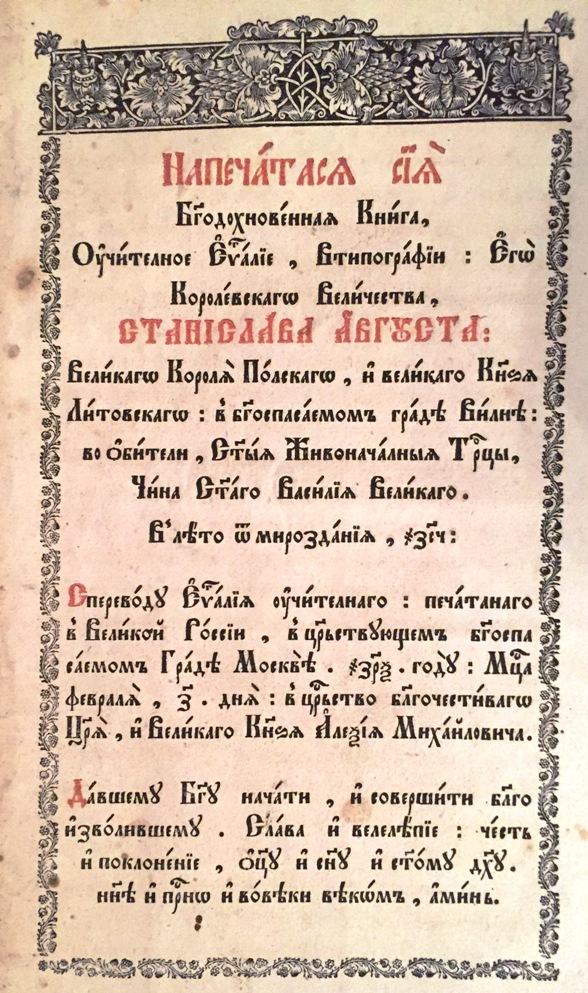 Напеча́тася сїѧ̀
Бг҃одꙋхнове́ннаѧ Кни́га,
Оу҆чи́телное Е҆ѵⷢ҇а́лїе , Втипогра́фїи : Е҆гѡ̀
Короле́вскагѡ Вели́чества,
СТАНІСЛА́ВА А҆́ВГꙊСТА:
Вели́кагѡ Королѧ̀ По́лскагѡ , и҆ вели́каго Кн҃зѧ
Ли́товскагѡ : в̾ бг҃оспаса́емомъ гра́дѣ Ви́лнѣ :
во ѻ҆би́тели , Ст҃ы́ѧ Живонача́лныѧ Трⷪ҇цы,
Чи́на Ст҃а́го Васи́лїѧ Вели́каго .
В̾лѣ́то ѿ мирозда́нїѧ , ҂зс҃ч :
Сперево́дꙋ Е҆ѵⷢ҇а́лїѧ оу҆чи́телнаго : печа́танаго
в̾ Вели́кой Рѡ́ссїи , в̾ црⷭ҇твꙋющемъ бг҃оспа
са́емомъ Гра́дѣ Москвѣ̀ . ҂зр҃ѯ . го́дꙋ : Мцⷭ҇а
февралѧ̀ , з҃ . днѧ̀ : в̾ црⷭ҇тво бл҃гочести́вагѡ
Цр҃ѧ̀ , и҆ Вели́каго Кн҃зѧ А҆леѯі́ѧ Миха́йловича.
Да́вшемꙋ Бг҃ꙋ нача́ти , и҆ соверши́ти бл҃го
и҆зво́лившемꙋ . Сла́ва и҆ велелѣ́пїе : че́сть
и҆ поклоне́нїе , ѻ҆ц҃ꙋ̀ и҆ сн҃ꙋ и҆ ст҃о́мꙋ дх҃ꙋ .
нн҃ѣ и҆ прⷭ҇нѡ и҆ вовѣ́ки вѣкѡ́мъ , а҆ми́нь.